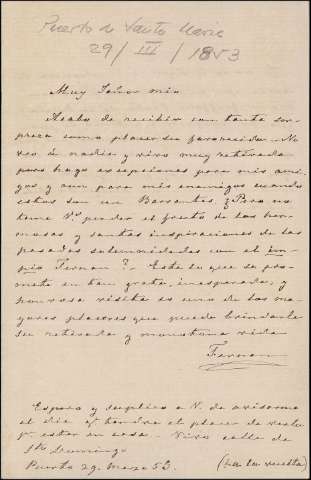 Puerto de Santa Maria
29/ III / 1853
Muy Señor mio
Acabo de recibir con tanta sor-
presa como placer su favorecida. No
veo á nadie y vivo muy retirada
pero hago esepciones para mis ami-
gos y aun para mis enemigos cuando
estos son un Barrantes ¿Pero no
teme V. perder el fruto de las her-
mosas y santas inspiraciones de las
pasadas solemnidades con el im-
pio Fernan?. Este lo que se pro-
mete es tan grata, inesperada, y
honrosa visita es uno de los ma-
yores placeres que puede brindarle
su retirada y monotona vida
Fernan
Espero y suplico a V. de avisarme
el dia qe tendre el placer de verlo
pa estar en casa. - Vivo calle de
Sto Domingo
Puerto 29. Marzo 53.
(a la vuelta)